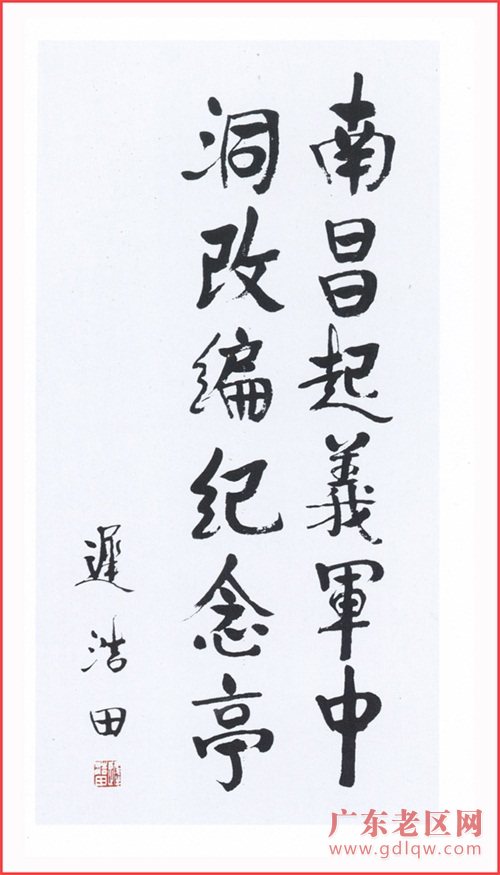 南昌起義軍中
洞改编纪念亭
遲浩田
广东老区网
www.gdlqw.com